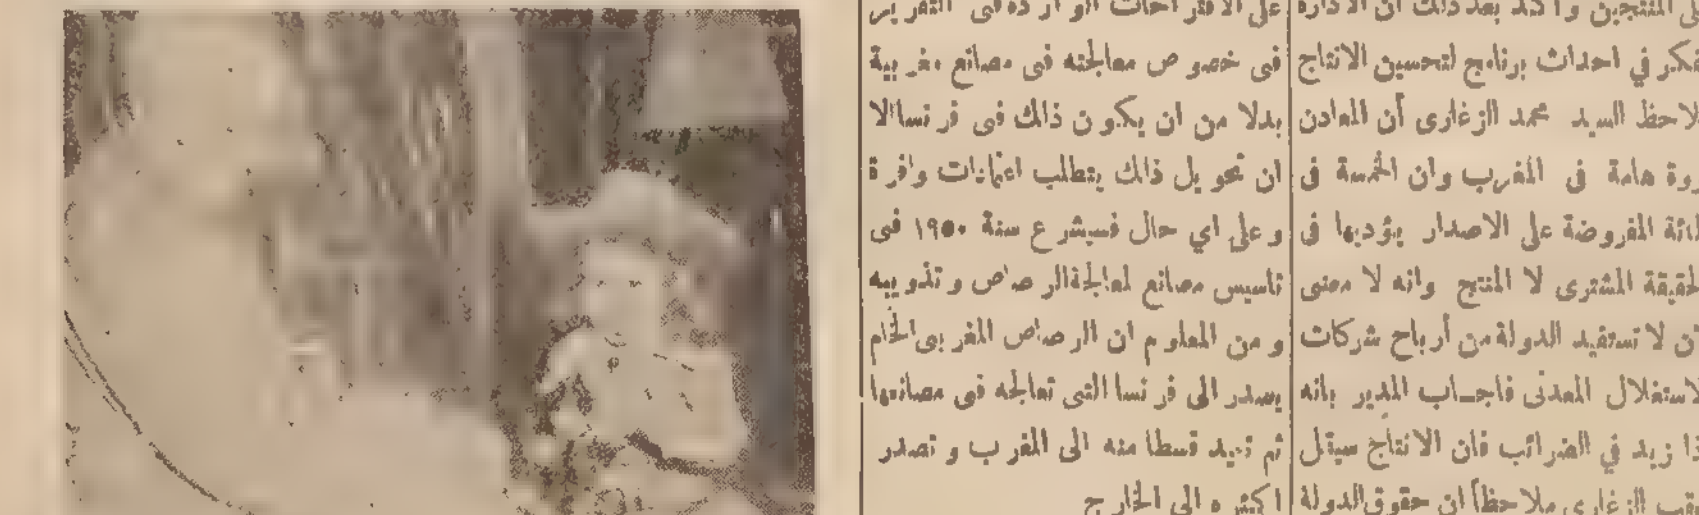 على المنتجين وأكد بعد ذلك ان الادارة
تفكر في احداث برنامج لتحسين الانتاج
لاحظ السيد محمد الزغارى أن المعادن
ثروة هامة فى المغرب وان الخمسة فى
المائة المفروضة على الاصدار يؤديها فى
الحقيقة المشترى لا المنتج وانه لا معنى
ان لا تستفيد الدولة من أرباح شركات
الاستغلال المعدنى فاجـاب المدير بانه
اذا زيد في الضرائب فان الانتاج سيقل
الزغارى ملاحظاً ان حقوق الدولة
على الاقتراحات الواردة فى التقرير
فى خصوص معالجته فى مصانع مغربية
بدلا من ان يكون ذلك فى فرنسا الا
ان تحويل ذلك يتطلب اعتمادات وافرة
وعلى اي حال فسيشرع سنة ١٩٥٠ فى
تاسيس مصانع لمعالجة الرصاص وتذويبه
ومن المعلوم ان الرصاص المغربى الخام
يصدر الى فرنسا التى تعالجه فى مصانعها
ثم تعيد قسطا منه الى المغرب وتصدر
اكثره الى الخارج